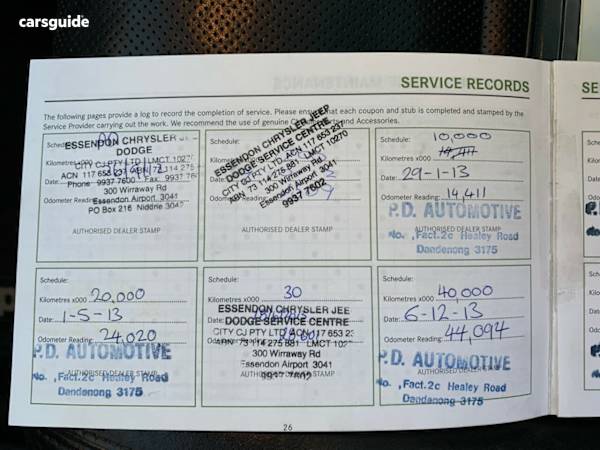 carsguide
SERVICE RECORDS
SE
The following pages provide a log to record the completion of service. Please ensure that each coupon and stub is completed and stamped by the
Service Provider carrying out the work. We recommend the use of genuine Accessories.
ESSENDON CHRYSLER
DODGE
CITY CJ PTY LTD LMCT
Phone 9937 7600 Fax
300 Wirraway Rd
Essendon Airport 3041
PO Box 216 Niddrie 3042
AUTHORISED DEALER STAMP
ESSENDON CHRYSLER JEEP
DODGE SERVICE CENTRE
CITY CJ PTY LTD ACN 117 653 237
ABN 73 114 275 881 LMCT 10270
300 Wirraway Rd
Essendon Airport 3041
9937 7602
AUTHORISED DEALER STAMP
Schedule: 10,000
Kilometres x000 14,411
Date: 29-1-13
Odometer Reading: 14,411
P.D. AUTOMOTIVE
No. , Fact.2c Healey Road
Dandenong 3175
AUTHORISED DEALER STAMP
Schedule:
Kilometres x000 20,000
Date: 1-5-13
Odometer Reading: 24,020
P.D. AUTOMOTIVE
AUTHORISED DEALER STAMP
No. , Fact.2c Healey Road
Dandenong 3175
Schedule:
Kilometres x000 30
ESSENDON CHRYSLER JEE
DODGE SERVICE CENTRE
CITY CJ PTY LTD ACN 117 653 23
ABN 73 114 275 881 LMCT
300 Wirraway Rd
Essendon Airport 3041
9937 7602
Schedule:
Kilometres x000 40,000
Date: 6-12-13
Odometer Reading: 44,094
P.D. AUTOMOTIVE
AUTHORISED DEALER STAMP
No. , Fact.2c Healey Road
Dandenong 3175
26